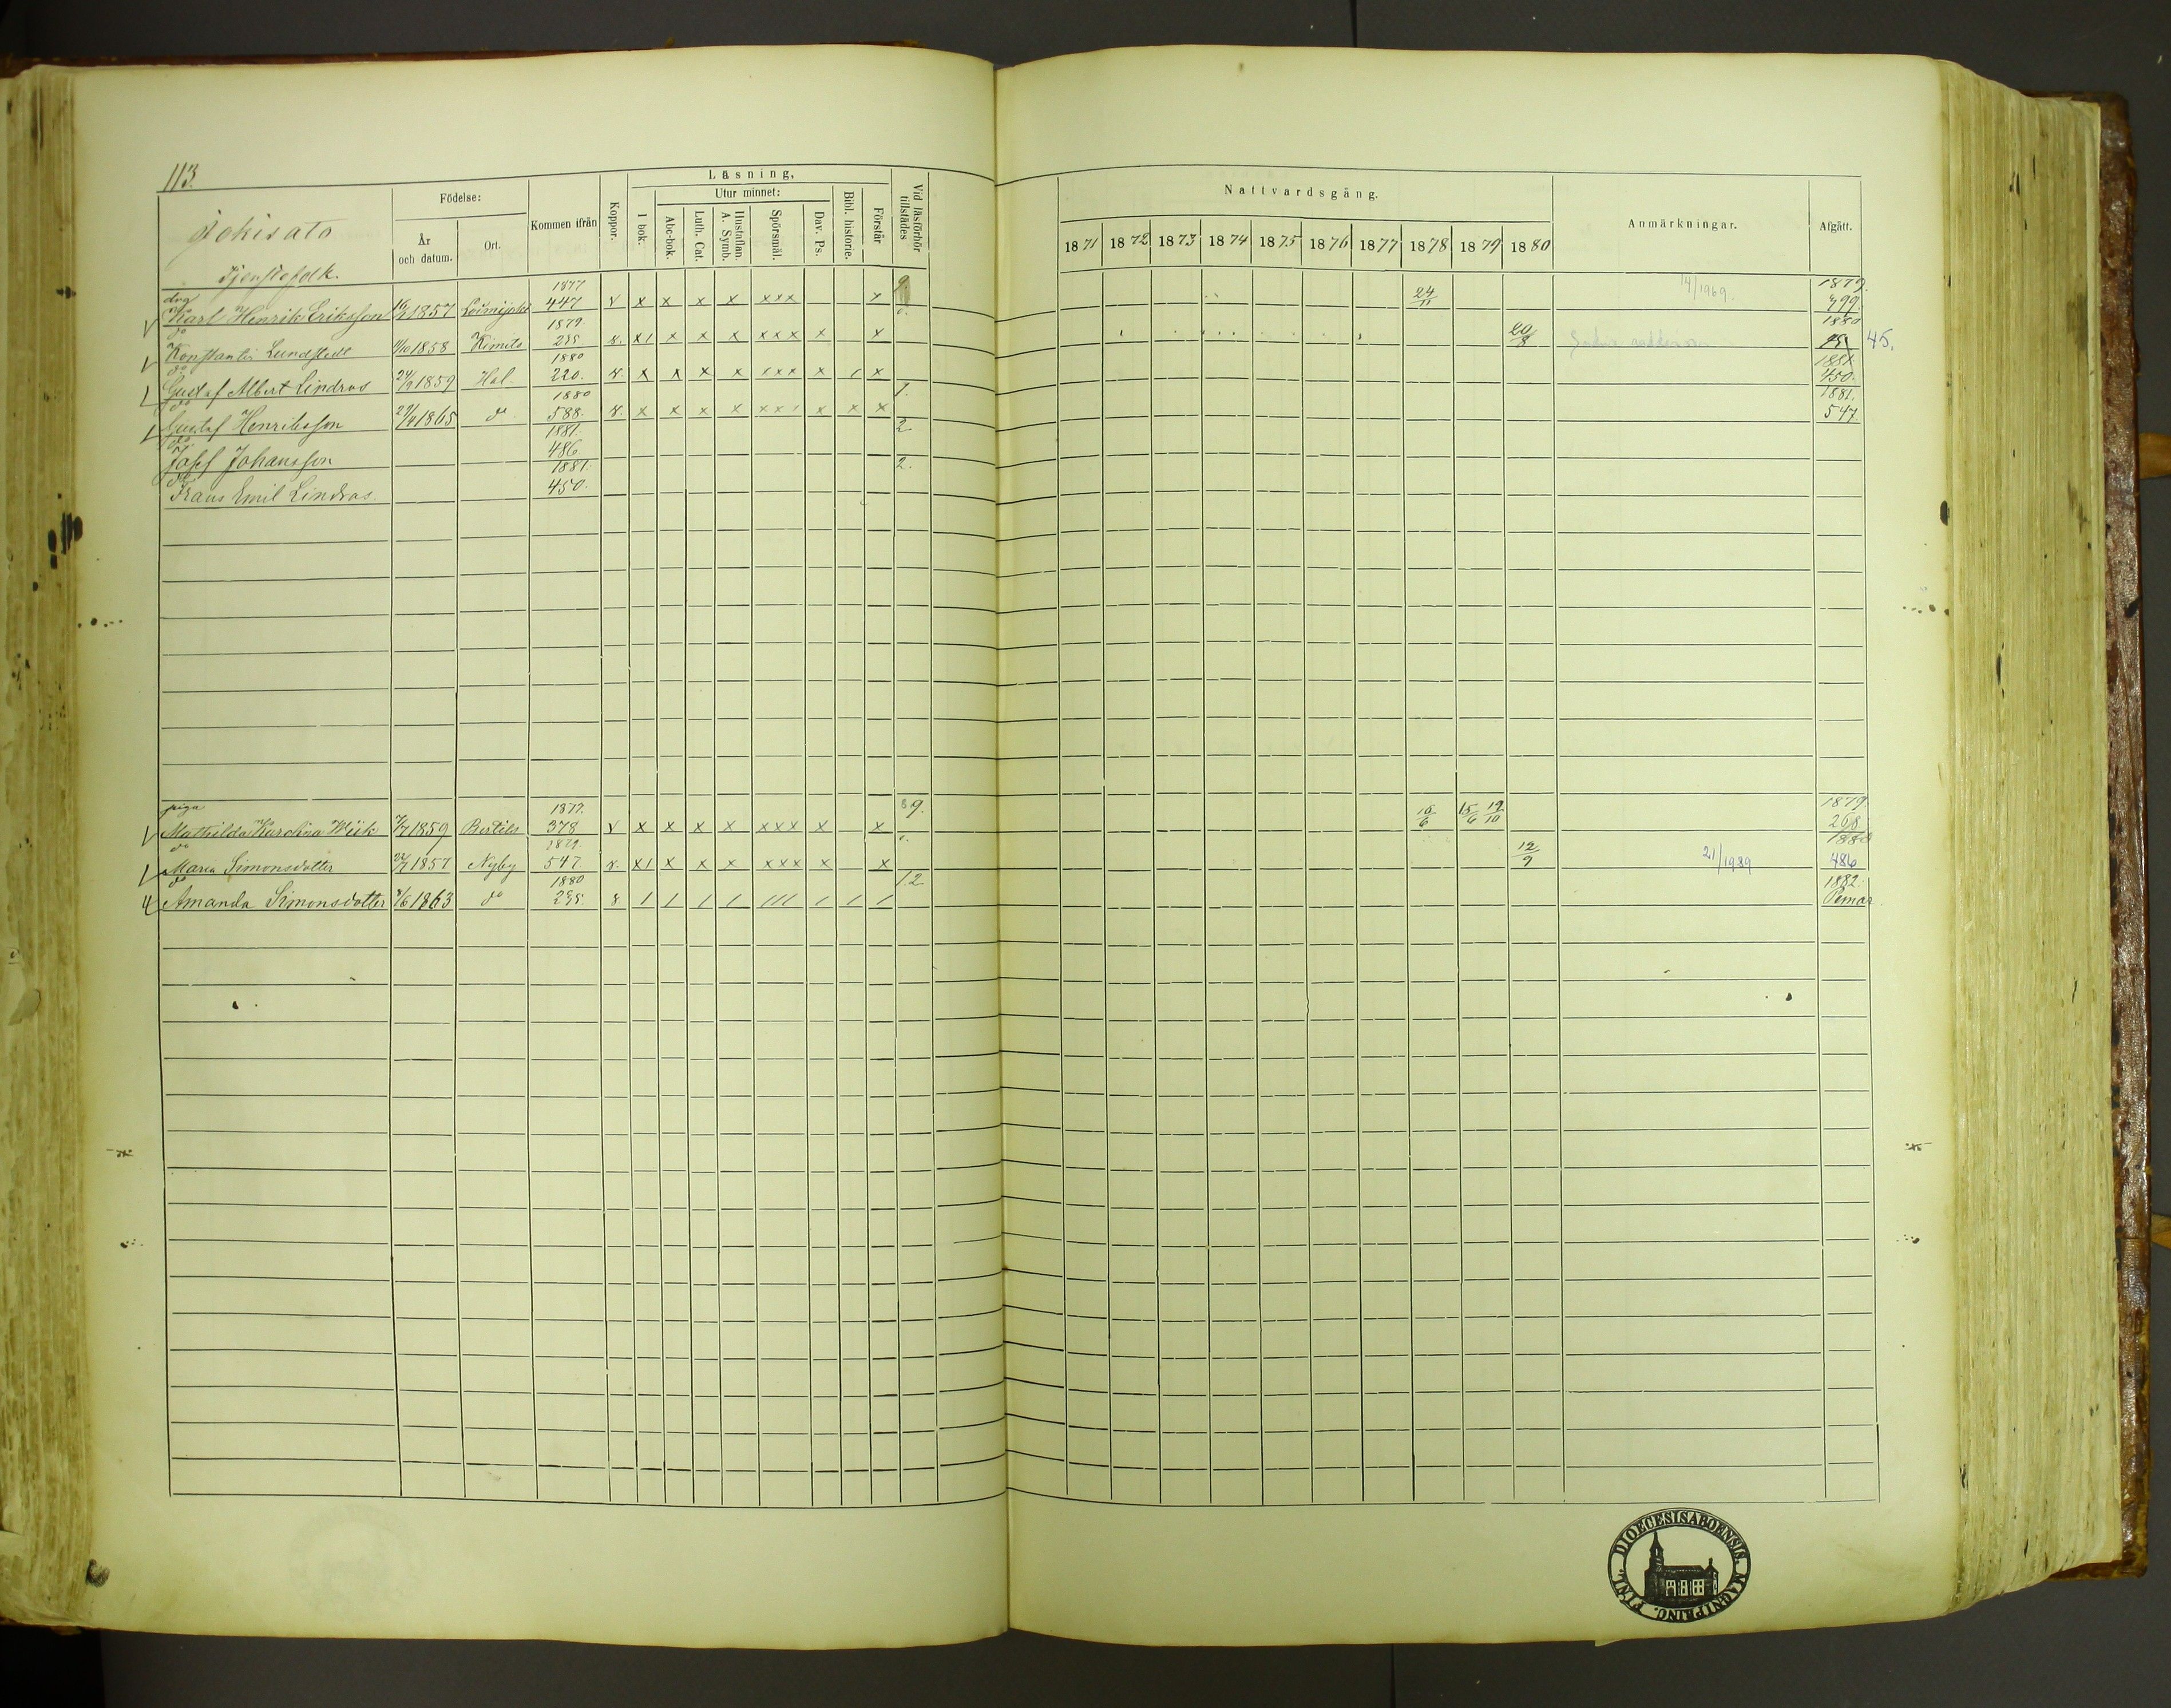 113.
Jokisato
Tjenstefolk.
Födelse:
År och datum.
Ort.
Kommen ifrån
Koppor.
Läsning,
I bok.
Utur minnet:
Abc-bok.
Luth. Cat.
Hustaflan. A. Symb.
Spörsmål.
Dav. Ps.
Bibl. historie.
Förstår
Vid läsförhör tillstädes
Nattvardsgång.
1871 1872 1873 1874 1875 1876 1877 1878 1879 1880
Anmärkningar.
Afgått.
1877 9. 14/1969. 1879.
drg Karl Henrik Eriksson 1857 Loimijoki 447 v x x x x xxx x 24/11 499.
1879 1880
do Konstantin Lundstedt 11/10 1858 Kimito 235 v. x1 x x x xxx x x 20/8 45.
1880 1881
do Gustaf Albert Lindros 24/9 1859 Hal. 220. v. x x x x 1xx x 1 x 1. 450.
1880 1881.
do Gustaf Henriksson 29/4 1865 do 588. v. x x x x xx1 x x x 2. 547.
1881.
do Josef Johansson 486 2.
1881.
do Frans Emil Lindros. 450.
piga 1877. 9. 1879.
Mathilda Karolina Wiik 7/7 1859 Bertils 378 v x x x x xxx x x 16/6 15/6 19/10 268.
1879. 1880
do Maria Simonsdotter 22/7 1857 Nyby 547. v. x1 x x x xxx x x 12/9 21/1989 486
1880 12. 1882.
4 do Amanda Simonsdotter 1863 do 235. v 1 1 1 1 111 1 1 1 Pemar.
DIOECESIS ABOENSIS. MAGNI PRINC. FINL.